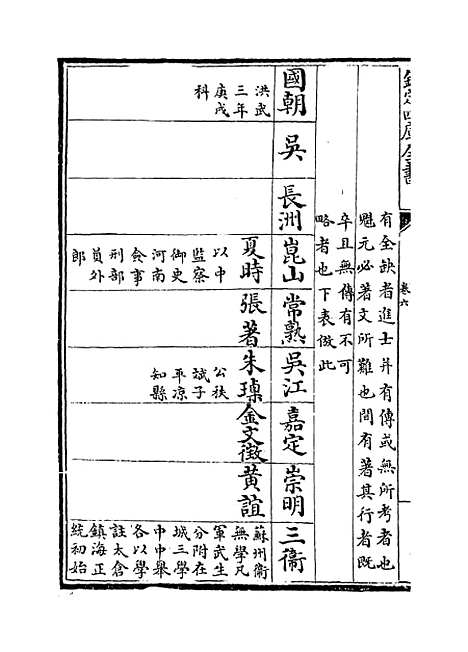 欽定四庫全書
卷六
有全缺者進士并有傳或無所考者也
魁元必著文所難也間有著其行者既
卒且無傳有不可
略者也下表倣此
國朝
吳
長洲
崑山
常熟
吳江
嘉定
崇明
三衞
洪武
三年
庚戌
科
夏時
以中
監察
御史
河南
僉事
刑部
員外
郎
張著
朱㻞
公秩
斌子
平凉
知縣
金文徵
黄誼
蘇州衞
無學凡
軍武生
分附在
城三學
中中舉
各以學
註太倉
鎮海正
統初始